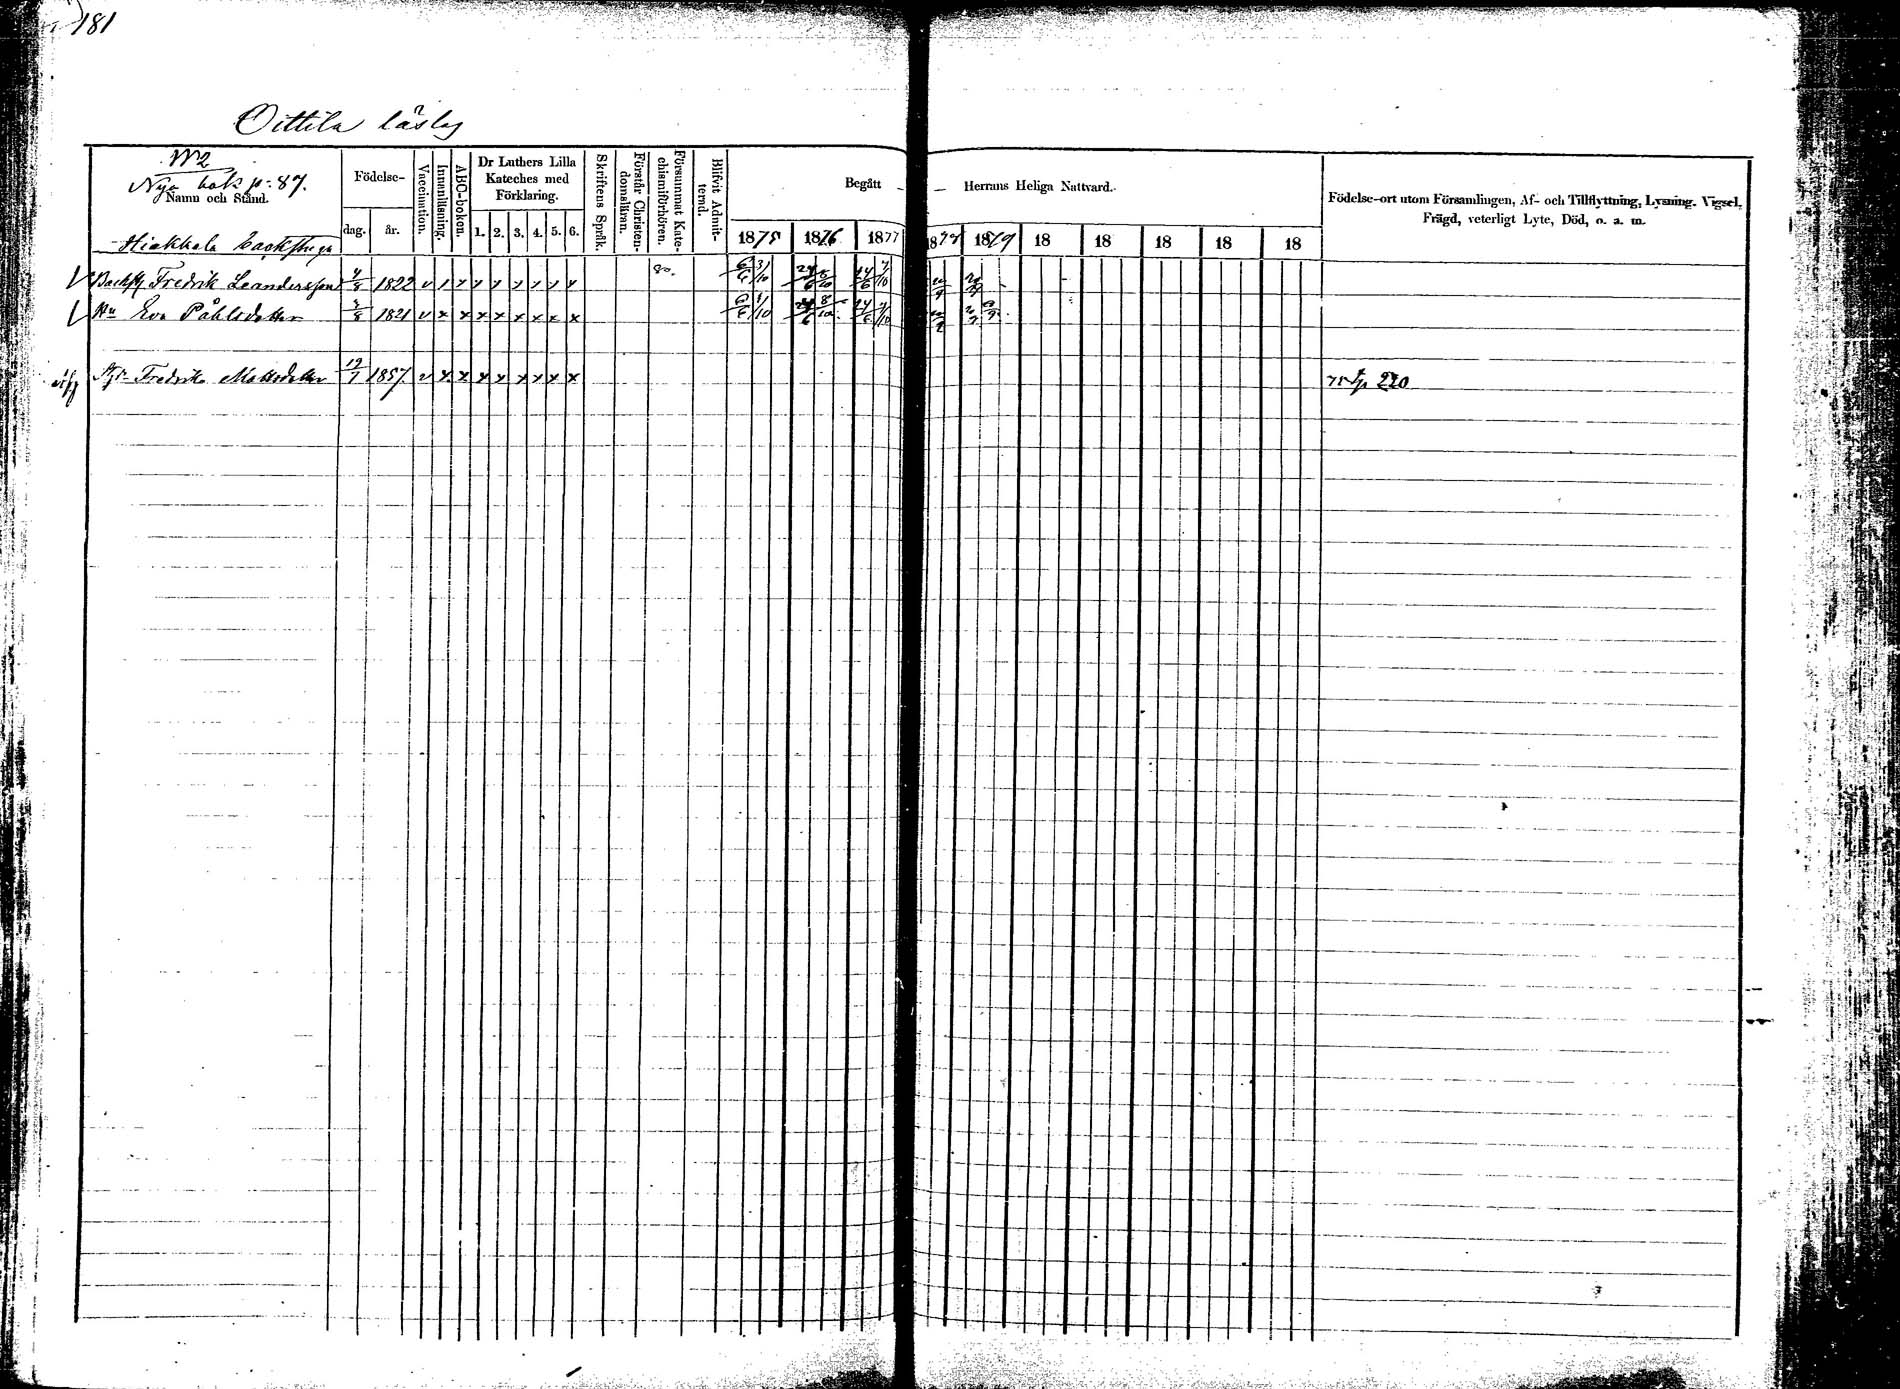 181
Oittila läslag
N:o 2
Nya bok p: 87.
Namn och Stånd.
Födelse-
dag. år.
Vaccination.
Innanläsning.
ABC-boken.
Dr Luthers Lilla Kateches med Förklaring.
1. 2. 3. 4. 5. 6.
Skriftens Språk.
Förstår Christendomsläran.
Försummat Katechismiförhören.
Blifvit Admitterad.
Begått
Herrans Heliga Nattvard.
1875 1876 1877 1878 1879 18 18 18 18 18
Födelse-ort utom Församlingen, Af- och Tillflyttning, Lysning, Vigsel,
Frägd, veterligt Lyte, Död, o. a. m.
Hiekkala backstuga
Fredrik Leandersson 1822 80.
Hu Eva Påhlsdotter 1821
Fredrika Mattsdotter 19/7 1857 75 p 220